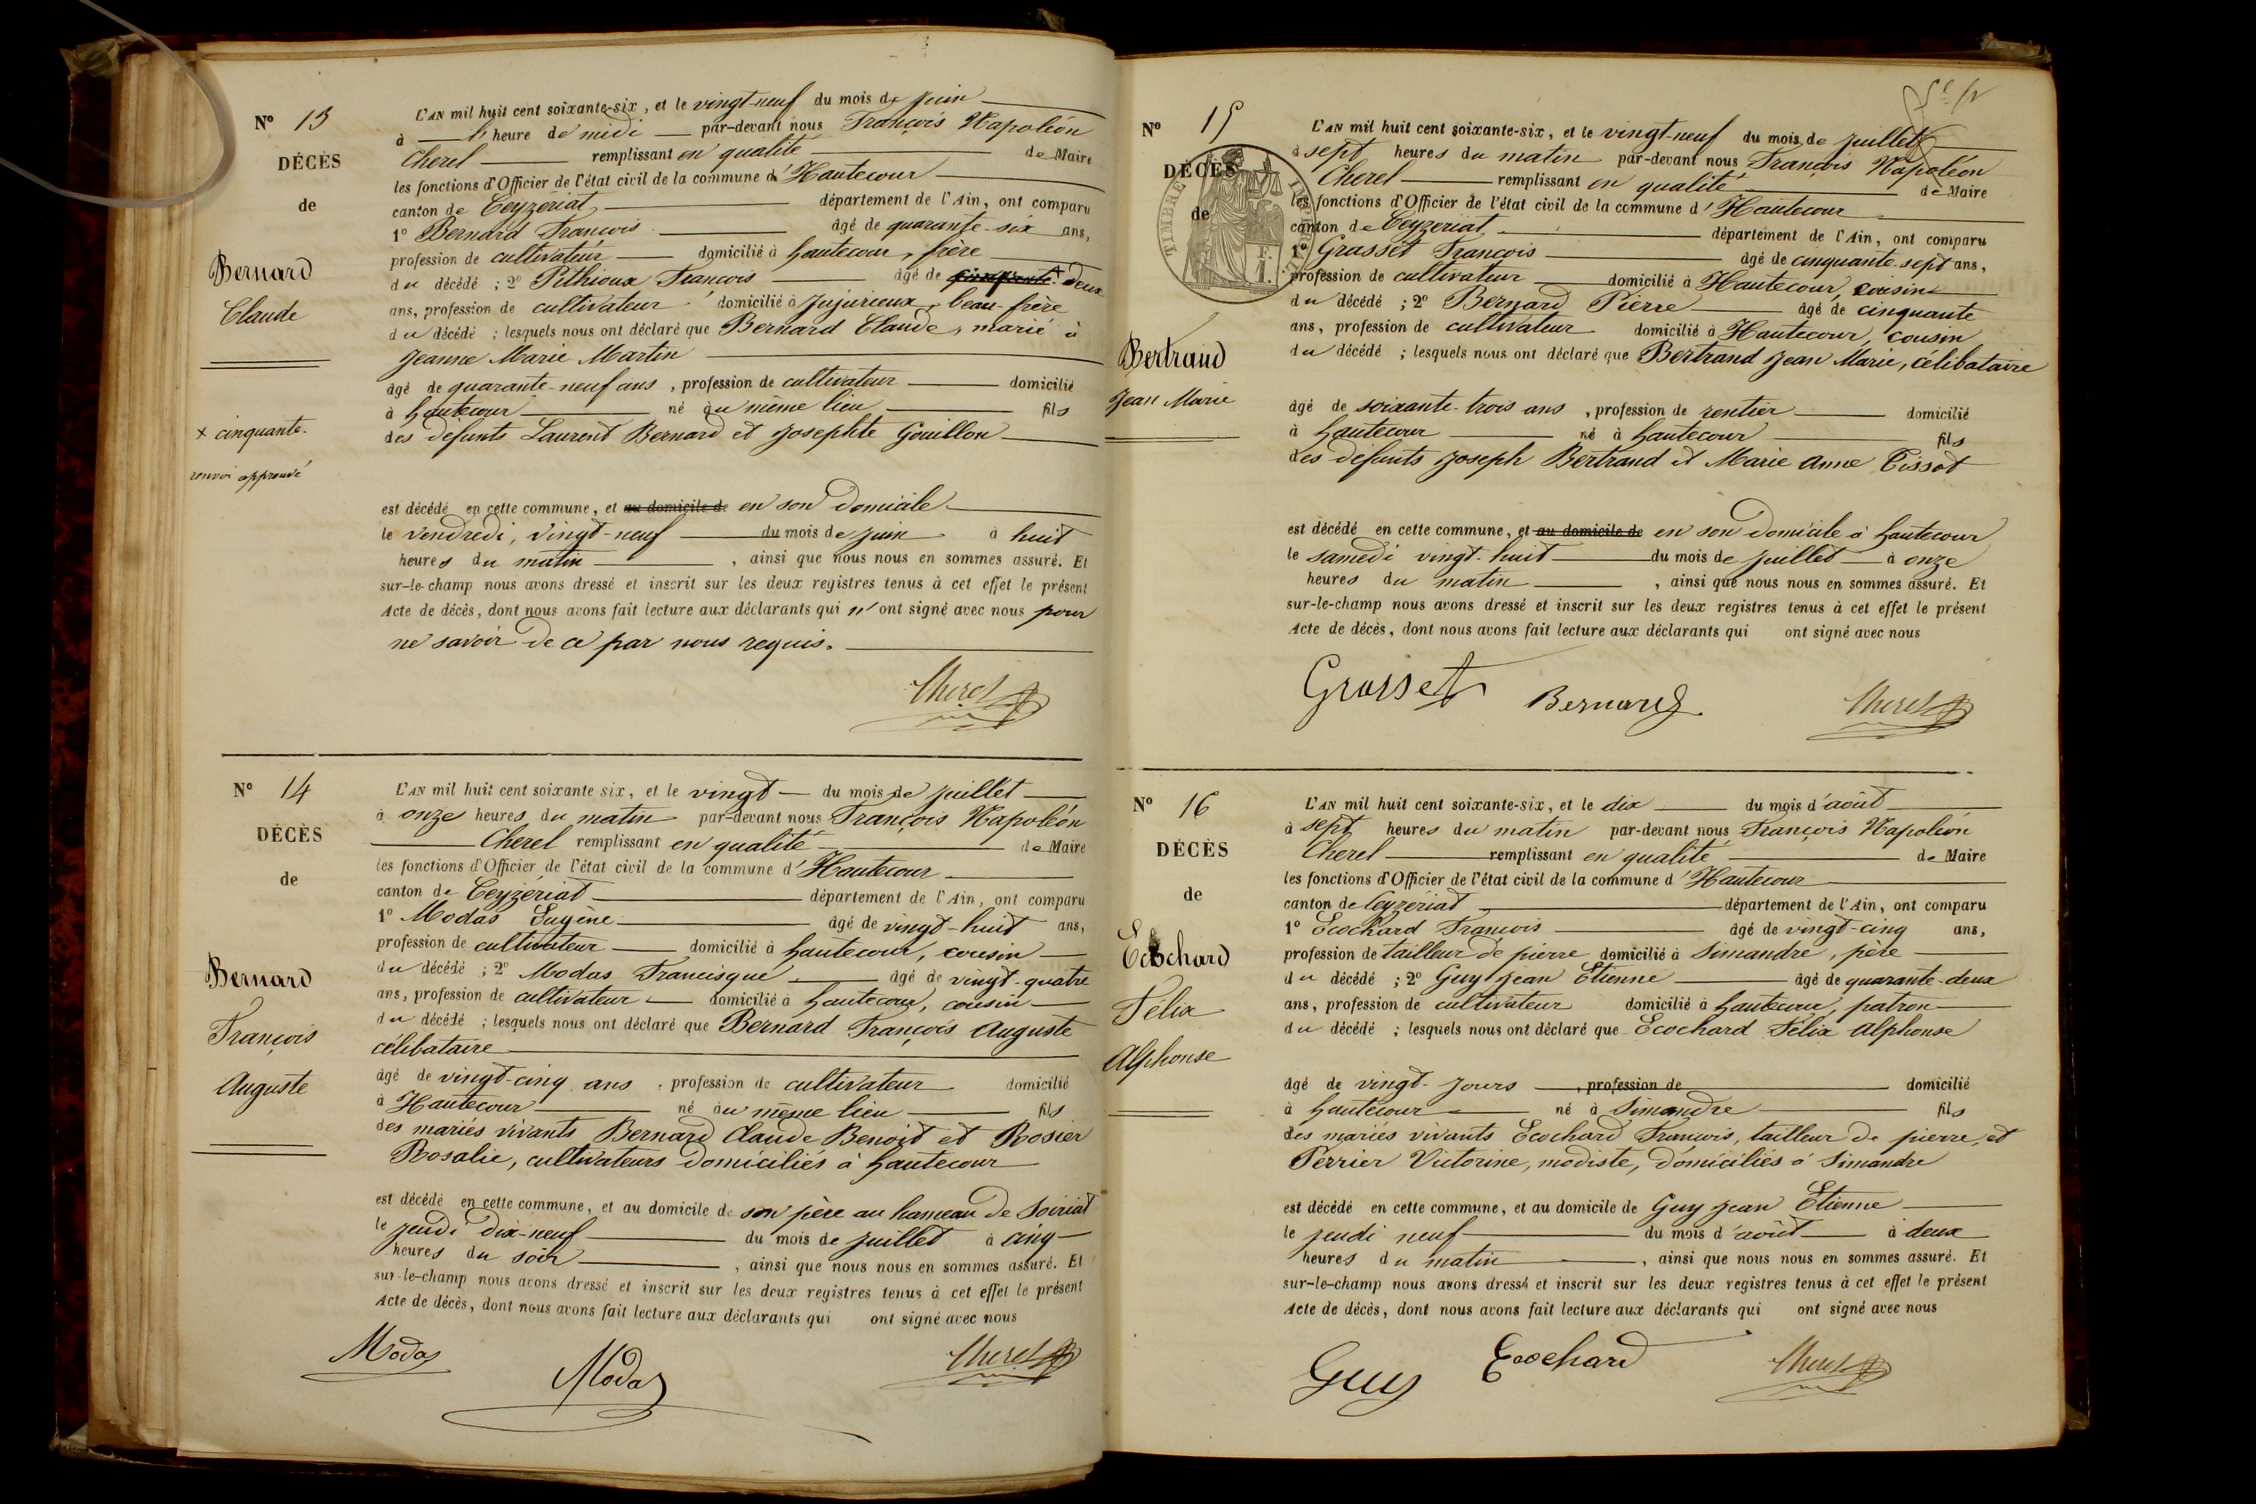 Nº 13
DÉCÈS
de
Bernard
Claude
x cinquante-
renvoi approuvé
L'AN mil huit cent soixante-six, et le vingt-neuf du mois de juin
à l'heure de midi par-devant nous François Napoléon
Cherel remplissant en qualité de Maire
les fonctions d'Officier de l'état civil de la commune d'Hautecour
canton de Ceyzériat département de l'Ain, ont comparu
1º Bernard François âgé de quarante-six ans,
profession de cultivateur domicilié à hautecour, frère
du décédé ; 2º Pithioux François âgé de x deux
ans, profession de cultivateur domicilié à Jujurieux, beau-frère
du décédé ; lesquels nous ont déclaré que Bernard Claude, marié à
Jeanne Marie Martin
âgé de quarante-neuf ans, profession de cultivateur domicilié
à hautecour né au même lieu fils
des défunts Laurent Bernard et Josephte Gouillon
est décédé en cette commune, et au domicile de en son domicile
le vendredi, vingt-neuf du mois de juin à huit
heures du matin, ainsi que nous nous en sommes assuré. Et
sur-le-champ nous avons dressé et inscrit sur les deux registres tenus à cet effet le présent
Acte de décès, dont nous avons fait lecture aux déclarants qui n'ont signé avec nous pour
ne savoir de ce par nous requis.
Cherel
Nº 14
DÉCÈS
de
Bernard
François
Auguste
L'AN mil huit cent soixante six, et le vingt du mois de juillet
à onze heures du matin par-devant nous François Napoléon
Cherel remplissant en qualité de Maire
les fonctions d'Officier de l'état civil de la commune d'Hautecour
canton de Ceyzériat département de l'Ain, ont comparu
1º Modas Eugène âgé de vingt-huit ans,
profession de cultivateur domicilié à hautecour, cousin
du décédé ; 2º Modas Francisque âgé de vingt-quatre
ans, profession de cultivateur domicilié à hautecour, cousin
du décédé ; lesquels nous ont déclaré que Bernard François Auguste
célibataire
âgé de vingt-cinq ans, profession de cultivateur domicilié
à Hautecour né au même lieu fils
des mariés vivants Bernard Claude Benoît et Rosier
Rosalie, cultivateurs domiciliés à hautecour
est décédé en cette commune, et au domicile de son père au hameau de Soiriat
le jeudi dix-neuf du mois de juillet à cinq
heures du soir, ainsi que nous nous en sommes assuré. Et
sur-le-champ nous avons dressé et inscrit sur les deux registres tenus à cet effet le présent
Acte de décès, dont nous avons fait lecture aux déclarants qui ont signé avec nous
Modas
Modas
Cherel
Nº 15
DÉCÈS
de
TIMBRE
Bertrand
Jean Marie
L'AN mil huit cent soixante-six, et le vingt-neuf du mois de juillet
à sept heures du matin par-devant nous François Napoléon
Cherel remplissant en qualité de Maire
les fonctions d'Officier de l'état civil de la commune d'Hautecour
canton de Ceyzériat département de l'Ain, ont comparu
1º Grasset François âgé de cinquante-sept ans,
profession de cultivateur domicilié à Hautecour, cousin
du décédé ; 2º Bernard Pierre âgé de cinquante
ans, profession de cultivateur domicilié à Hautecour, cousin
du décédé ; lesquels nous ont déclaré que Bertrand Jean Marie, célibataire
âgé de soixante-trois ans, profession de rentier domicilié
à hautecour né à hautecour fils
des défunts Joseph Bertrand et Marie Anne Tissot
est décédé en cette commune, et au domicile de en son domicile à hautecour
le samedi vingt-huit du mois de juillet à onze
heures du matin, ainsi que nous nous en sommes assuré. Et
sur-le-champ nous avons dressé et inscrit sur les deux registres tenus à cet effet le présent
Acte de décès, dont nous avons fait lecture aux déclarants qui ont signé avec nous
Grasset Bernard Cherel
Nº 16
DÉCÈS
de
Ecochard
Félix
Alphonse
L'AN mil huit cent soixante-six, et le dix du mois d'août
à sept heures du matin par-devant nous François Napoléon
Cherel remplissant en qualité de Maire
les fonctions d'Officier de l'état civil de la commune d'Hautecour
canton de Ceyzériat département de l'Ain, ont comparu
1º Ecochard François âgé de vingt-cinq ans,
profession de tailleur de pierre domicilié à Simandre, père
du décédé ; 2º Guy Jean Etienne âgé de quarante-deux
ans, profession de cultivateur domicilié à hautecour, patron
du décédé ; lesquels nous ont déclaré que Ecochard Félix Alphonse
âgé de vingt-jours, profession de domicilié
à hautecour né à Simandre fils
des mariés vivants Ecochard François, tailleur de pierre, et
Perrier Victorine, modiste, domiciliés à Simandre
est décédé en cette commune, et au domicile de Guy Jean Etienne
le jeudi neuf du mois d'août à deux
heures du matin, ainsi que nous nous en sommes assuré. Et
sur-le-champ nous avons dressé et inscrit sur les deux registres tenus à cet effet le présent
Acte de décès, dont nous avons fait lecture aux déclarants qui ont signé avec nous
Guy Ecochard Cherel